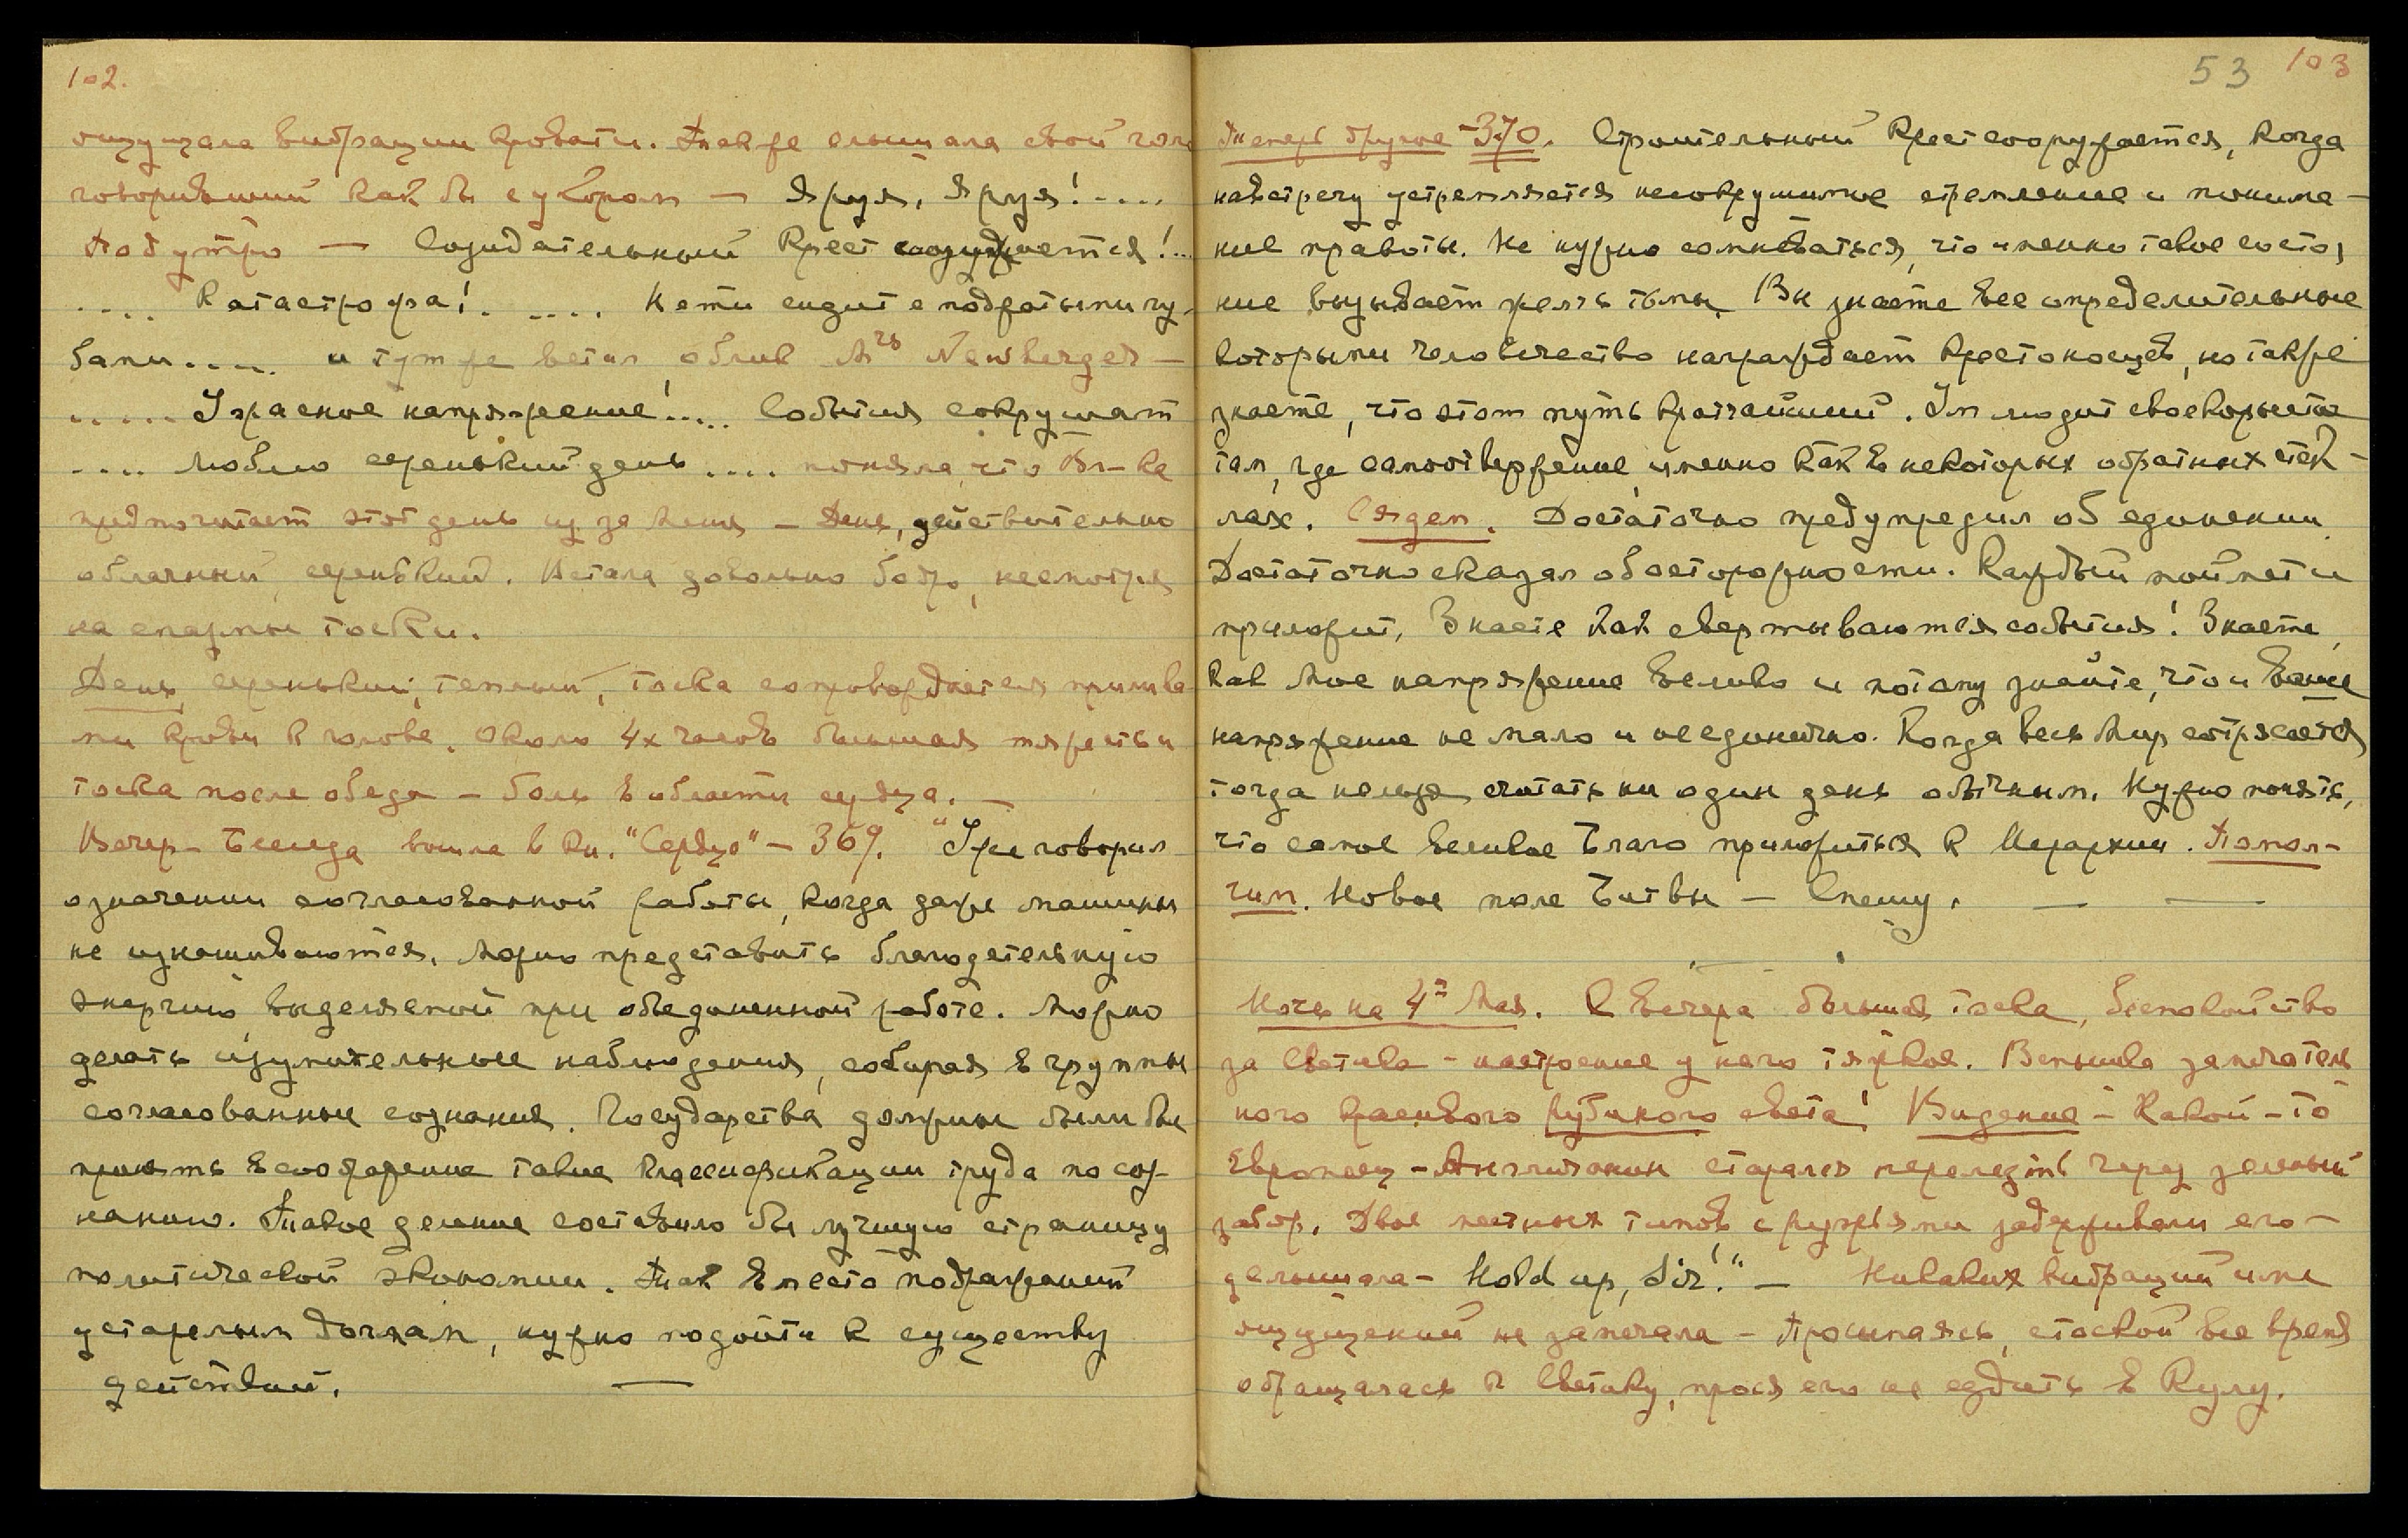 102.
ощущала вибрации кровати. Также слышала свой голос
говоривший как бы с укором — Яруя, Яруя!....
Под утро — Созидательный Крест сооружается!...
.... Катастрофа!. .... Кети сидит с поджатыми гу-
бами.... и тут же встал облик Mrs Newberger —
..... Ужасное напряжение!.... События сокрушат
.... Люблю серенький день .... поняла, что Вл-ка
предпочитает этот день из за меня — День, действительно
облачный, серенький. Встала довольно бодро, несмотря
на спазмы тоски.
День серенький, теплый, тоска сопровождается прилива-
ми крови к голове. Около 4х часов большая тяжесть и
тоска после обеда — боль в области сердца. —
Вечер — Беседа вошла в кн. "Сердце" — 369. "Уже говорил
о значении согласованной работы, когда даже машины
не изнашиваются. Можно представить благодетельную
энергию, выделяемой при объединенной работе. Можно
делать изумительные наблюдения, собирая в группы
согласованные сознания. Государства должны были бы
принять в соображение такие классификации труда по соз-
нанию. Такое деление составило бы лучшую страницу
политической экономии. Так вместо подражаний
устарелым догмам, нужно подойти к существу
действий. —
53 103
Теперь другое — 370. Строительный Крест сооружается, когда
навстречу устремляется несокрушимое стремление и понима-
ние правоты. Не нужно сомневаться, что именно такое состоя-
ние вызывает желчь тьмы. Вы знаете все определительные
которыми человечество награждает Крестоносцев, но также
знаете, что этот путь кратчайший. Им мозгит своекорыстие
там, где самоотвержение, именно как в некоторых обратных стек-
лах. Сядем. Достаточно предупредил об единении
Достаточно сказал об осторожности. Каждый поймет и
приложит. Знаете как свертываются события! Знаете,
как Мое напряжение велико и потому знайте, что и ваше
напряжение не мало и не единично. Когда весь Мир сотрясается
тогда нельзя считать ни один день обычным. Нужно понять,
что самое великое Благо приложиться к Иерархии. Помол-
чим. Новое поле Битвы — Спешу. — —
Ночь на 4е Мая. С вечера большая тоска, беспокойство
за Светика — настроение у него тяжкое. Вспышка замечатель
ного красивого рубиного света! Видение — Какой-то
Европеец — Англичанин старался перелезть через зеленый
забор. Двое местных типов с ружьями задерживали его —
услышала — Hold up, Sir!" — Никаких вибраций и не
ощущений не замечала — Просыпаясь, с тоской все время
обращалась к Светику, прося его не ездить в Кулу.